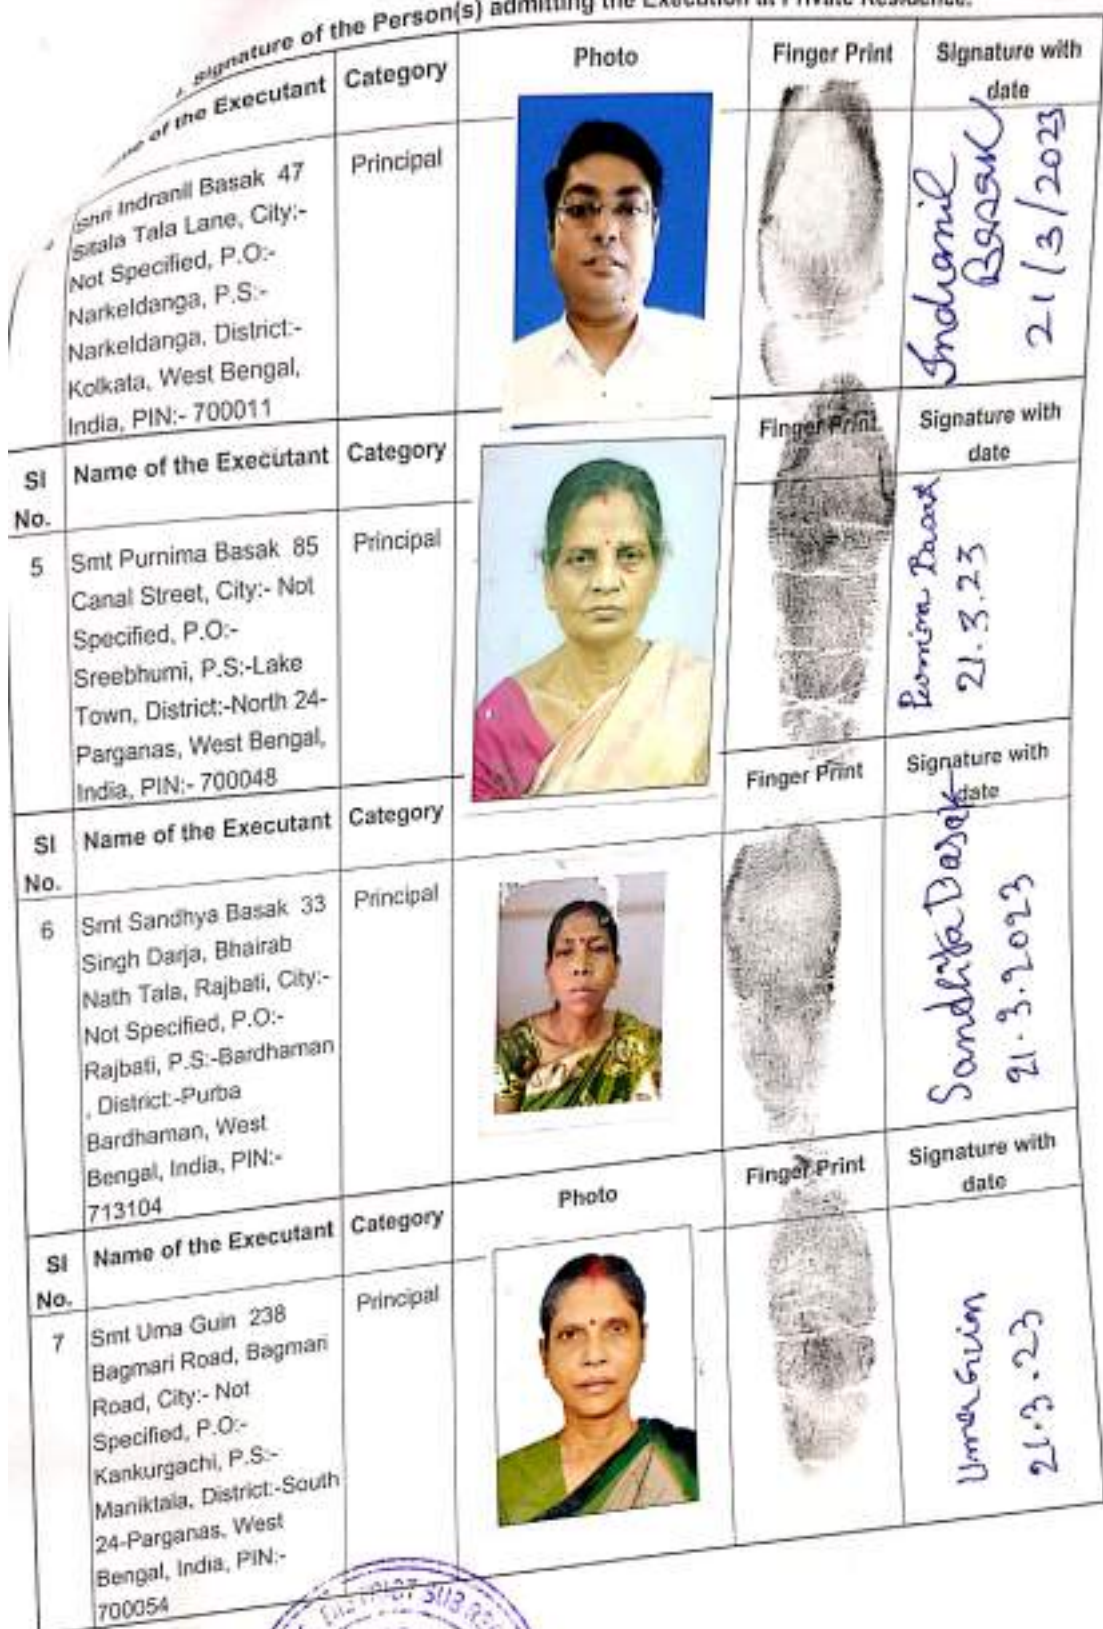 . Signature of the Person(s) admitting the Execution at Private Residence.
of the Executant Category Photo Finger Print Signature with date
Shri Indranil Basak 47
Sitala Tala Lane, City:-
Not Specified, P.O:-
Narkeldanga, P.S:-
Narkeldanga, District:-
Kolkata, West Bengal,
India, PIN:- 700011
Principal
Indranil
Basak
21/3/2023
Sl No. Name of the Executant Category Finger Print Signature with date
5
Smt Purnima Basak 85
Canal Street, City:- Not
Specified, P.O:-
Sreebhumi, P.S:-Lake
Town, District:-North 24-
Parganas, West Bengal,
India, PIN:- 700048
Principal
Purnima Basak
21.3.23
Sl No. Name of the Executant Category Finger Print Signature with date
6
Smt Sandhya Basak 33
Singh Darja, Bhairab
Nath Tala, Rajbati, City:-
Not Specified, P.O:-
Rajbati, P.S:-Bardhaman
, District:-Purba
Bardhaman, West
Bengal, India, PIN:-
713104
Principal
Sandhya Basak
21.3.2023
Sl No. Name of the Executant Category Photo Finger Print Signature with date
7
Smt Uma Guin 238
Bagmari Road, Bagmari
Road, City:- Not
Specified, P.O:-
Kankurgachi, P.S:-
Maniktala, District:-South
24-Parganas, West
Bengal, India, PIN:-
700054
Principal
Uma Guin
21.3.23
DISTRICT SUB